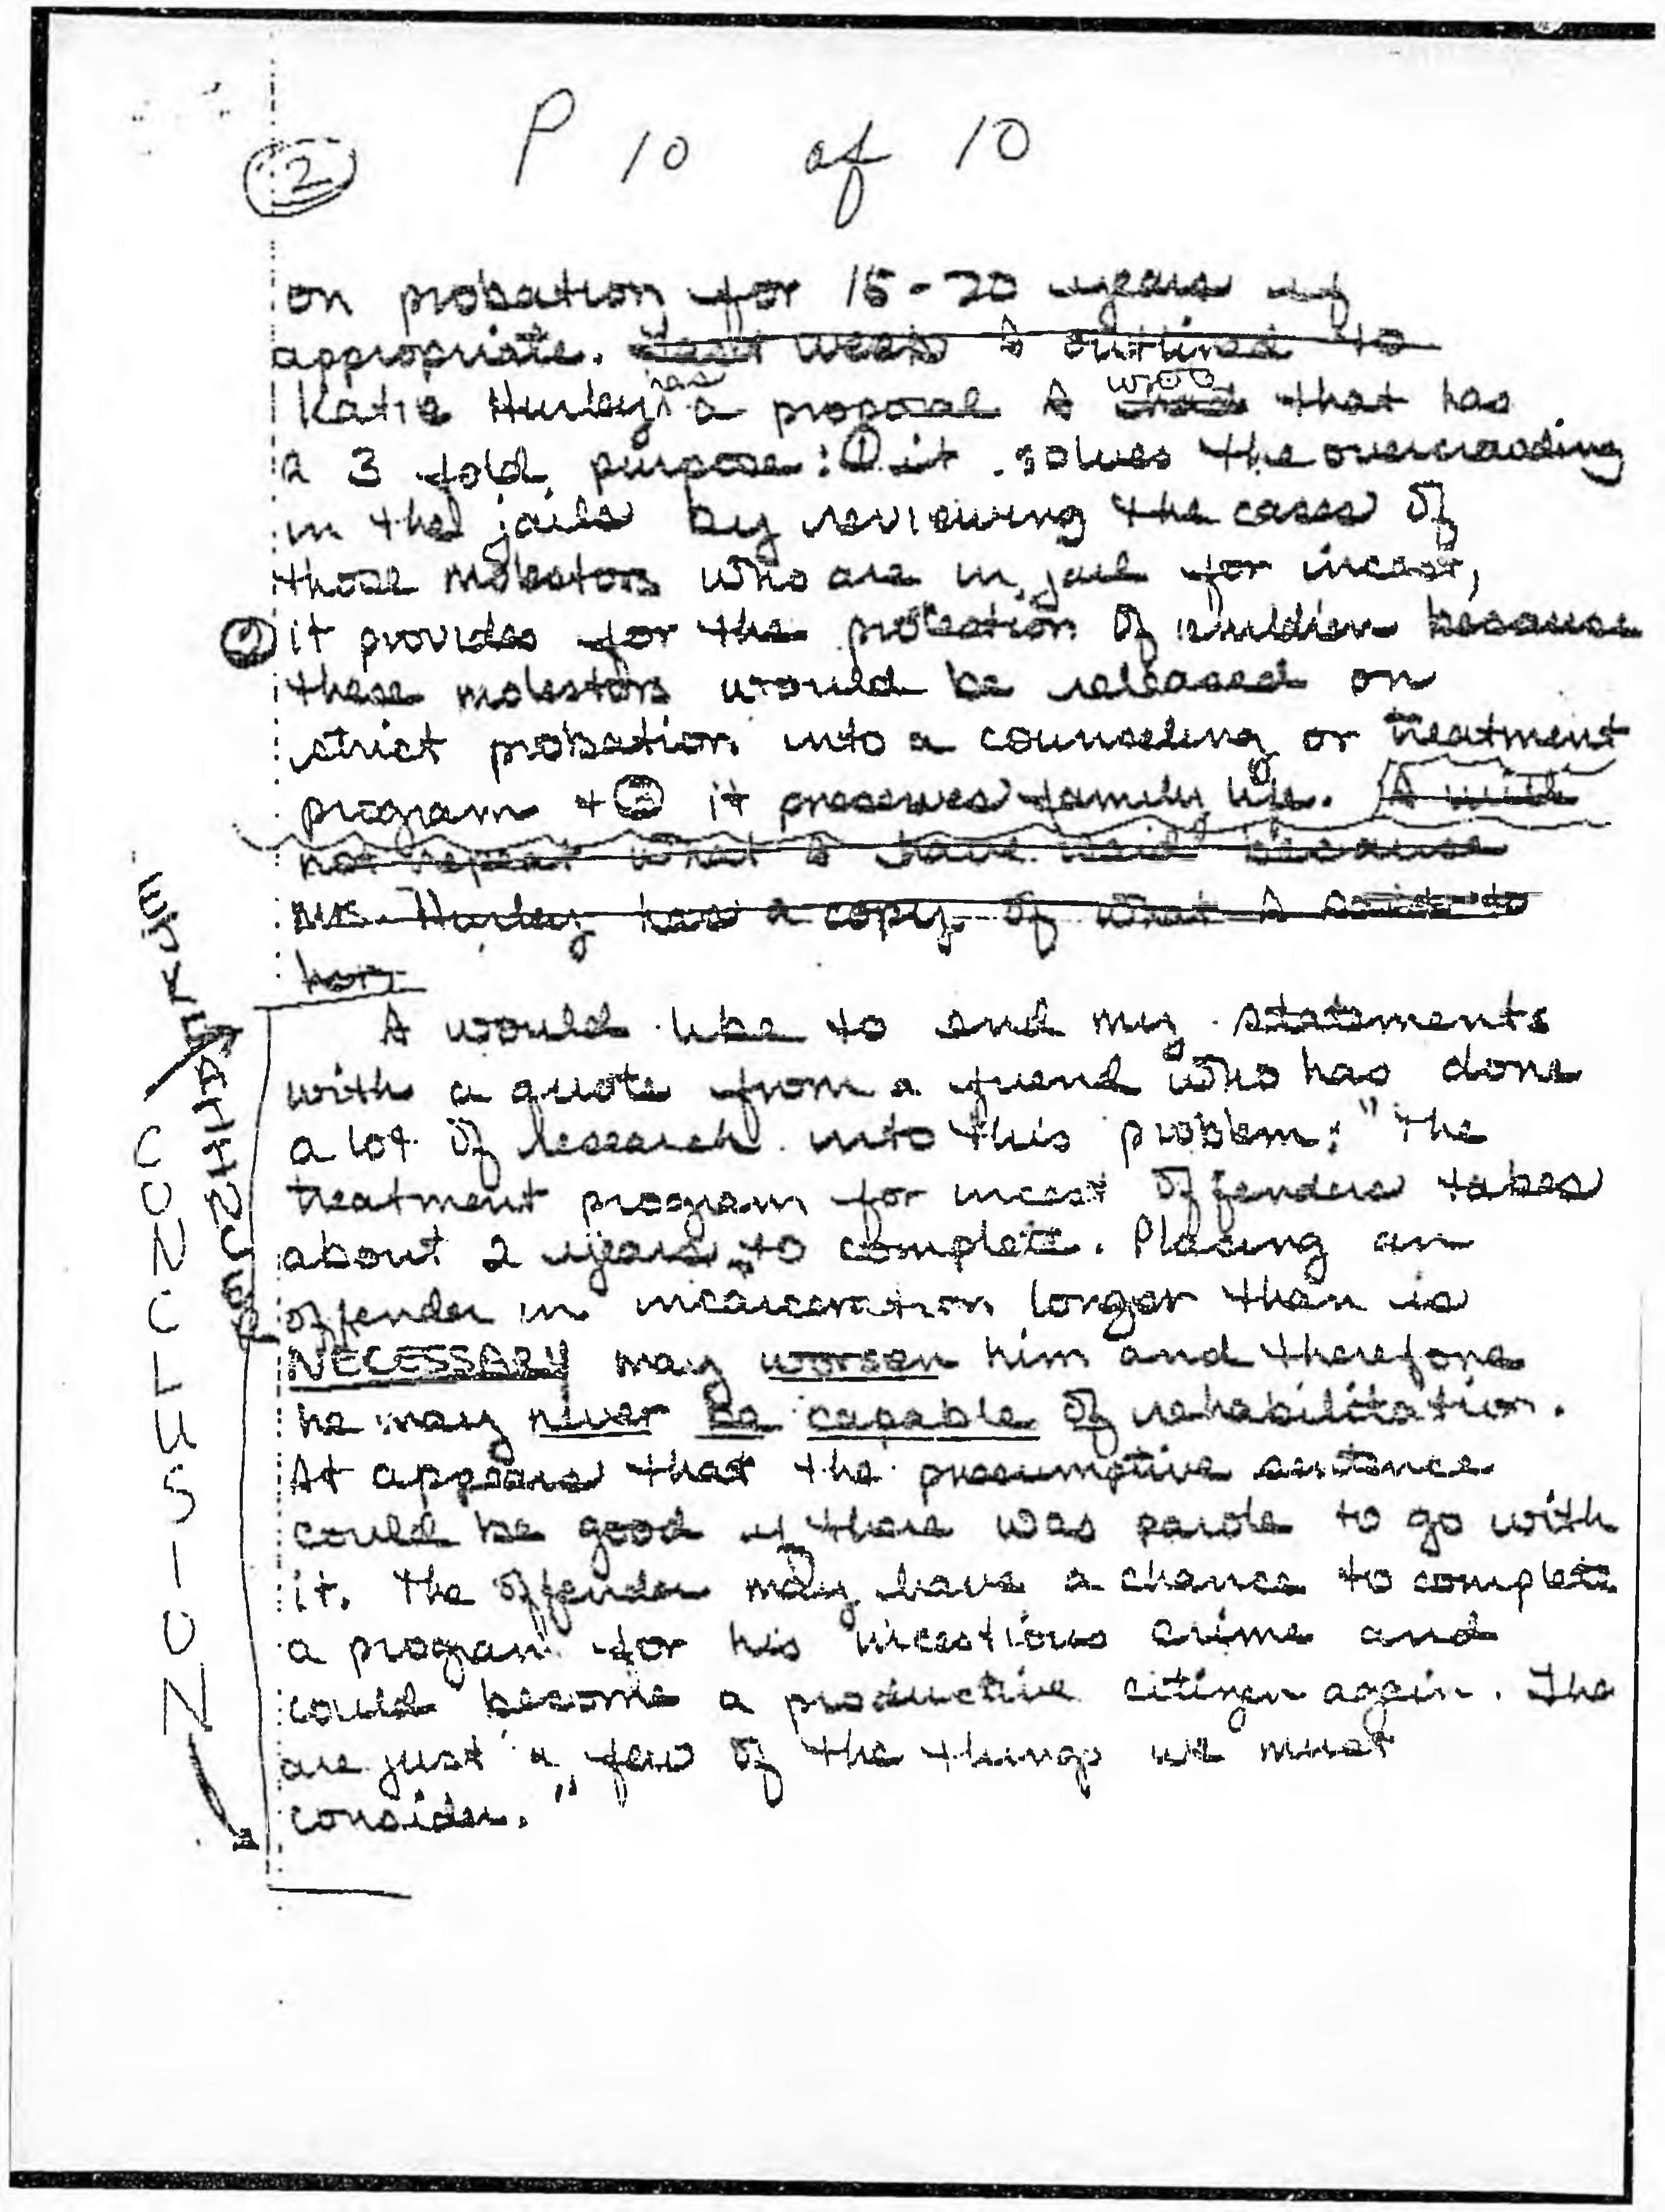 P 10 of 10
2
on probation for 15-20 years if
appropriate. Last week I outlined to
has wrote
Katie Hurley a proposal I that has
a 3 fold purpose: ① it solves the overcrowding
in the jails by reviewing the cases of
those molestors who are in jail for incest,
② it provides for the protection of children because
these molestors would be released on
strict probation into a counseling or treatment
program + ③ it preserves family life. I will
not repeat what I have said because
Ms. Hurley has a copy of what I said to
her
I would like to end my statements
with a quote from a friend who has done
a lot of research into this problem: "The
treatment program for incest offenders takes
about 2 years to complete. Placing an
offender in incarceration longer than is
NECESSARY may worsen him and therefore
he may never be capable of rehabilitation.
It appears that the presumptive sentence
could be good if there was parole to go with
it. The offender may have a chance to complete
a program for his incestious crime and
could become a productive citizen again. The
are just a few of the things we must
consider."
CONCLUSION